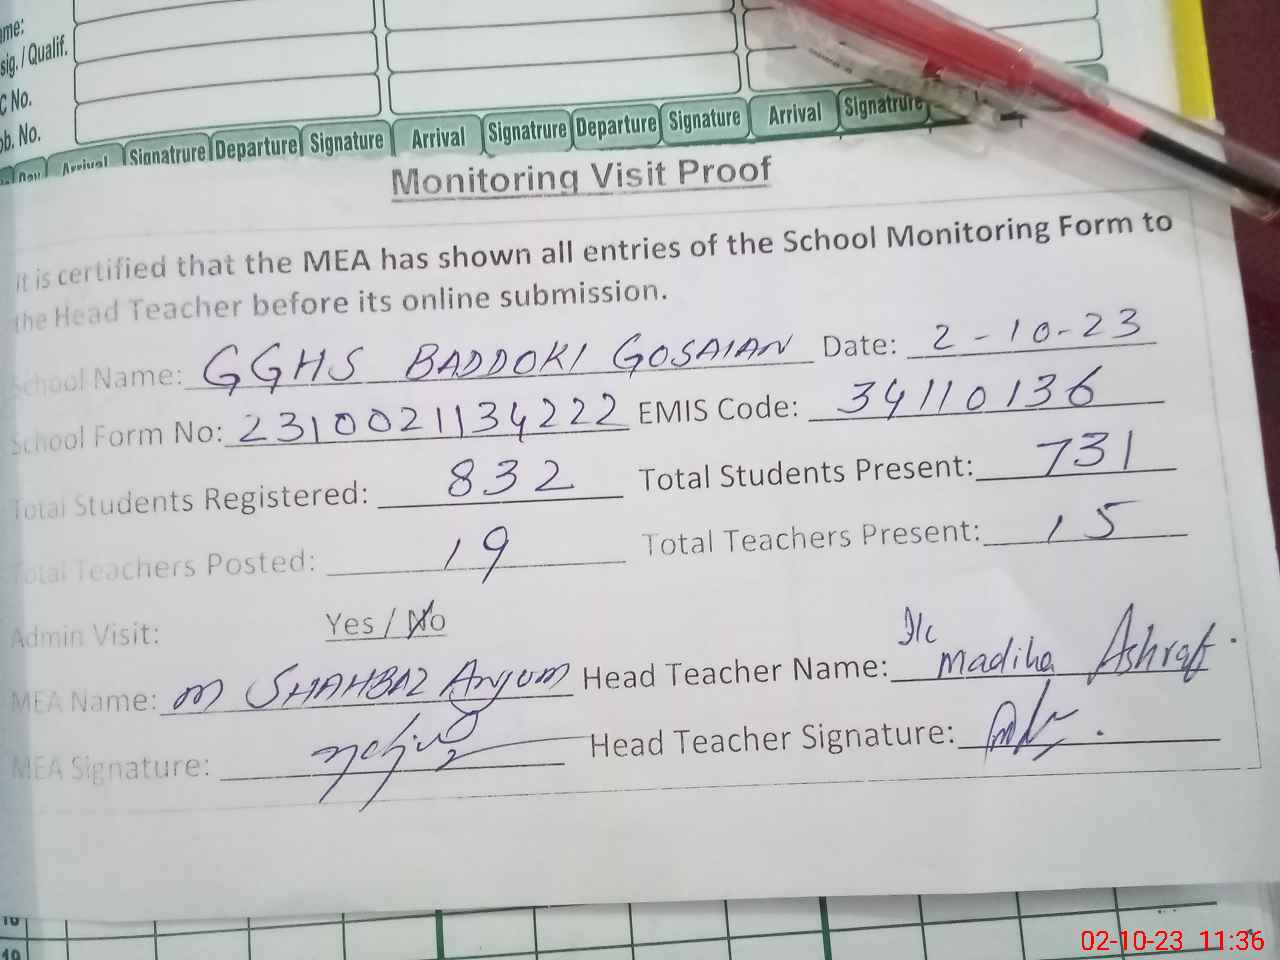 ame:
sig. / Qualif.
C No.
ob. No.
Day Arrival Signatrure Departure Signature Arrival Signatrure Departure Signature Arrival Signatrure
Monitoring Visit Proof
It is certified that the MEA has shown all entries of the School Monitoring Form to
the Head Teacher before its online submission.
School Name: GGHS BADDOKI GOSAIAN Date: 2-10-23
School Form No: 2310021134222 EMIS Code: 34110136
Total Students Registered: 832 Total Students Present: 731
Total Teachers Posted: 19 Total Teachers Present: 15
Admin Visit: Yes / No
I/c
MEA Name: M SHAHBAZ Anjum Head Teacher Name: Madiha Ashraf.
MEA Signature: Head Teacher Signature:
18
19
02-10-23 11:36